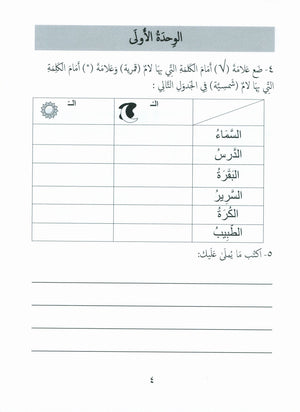 الوِحدَةُ الأُولَى
٤- ضَع عَلامَةَ (√) أَمَامَ الكَلِمَةِ التِي بِهَا لامٌ (قمرية) وَعَلامَةَ (*) أَمَامَ الكَلِمَةِ
التِي بِهَا لامٌ (شمسِيَّة) فِي الجَدوَلِ التَّالِي :
الـ الـ
السَّمَاءُ
الدَّرسُ
البَقَرَةُ
السَّرِيرُ
الكُرَةُ
الطَّبِيبُ
٥- اكتُب مَا يُملَىٰ عَلَيكَ:
٤